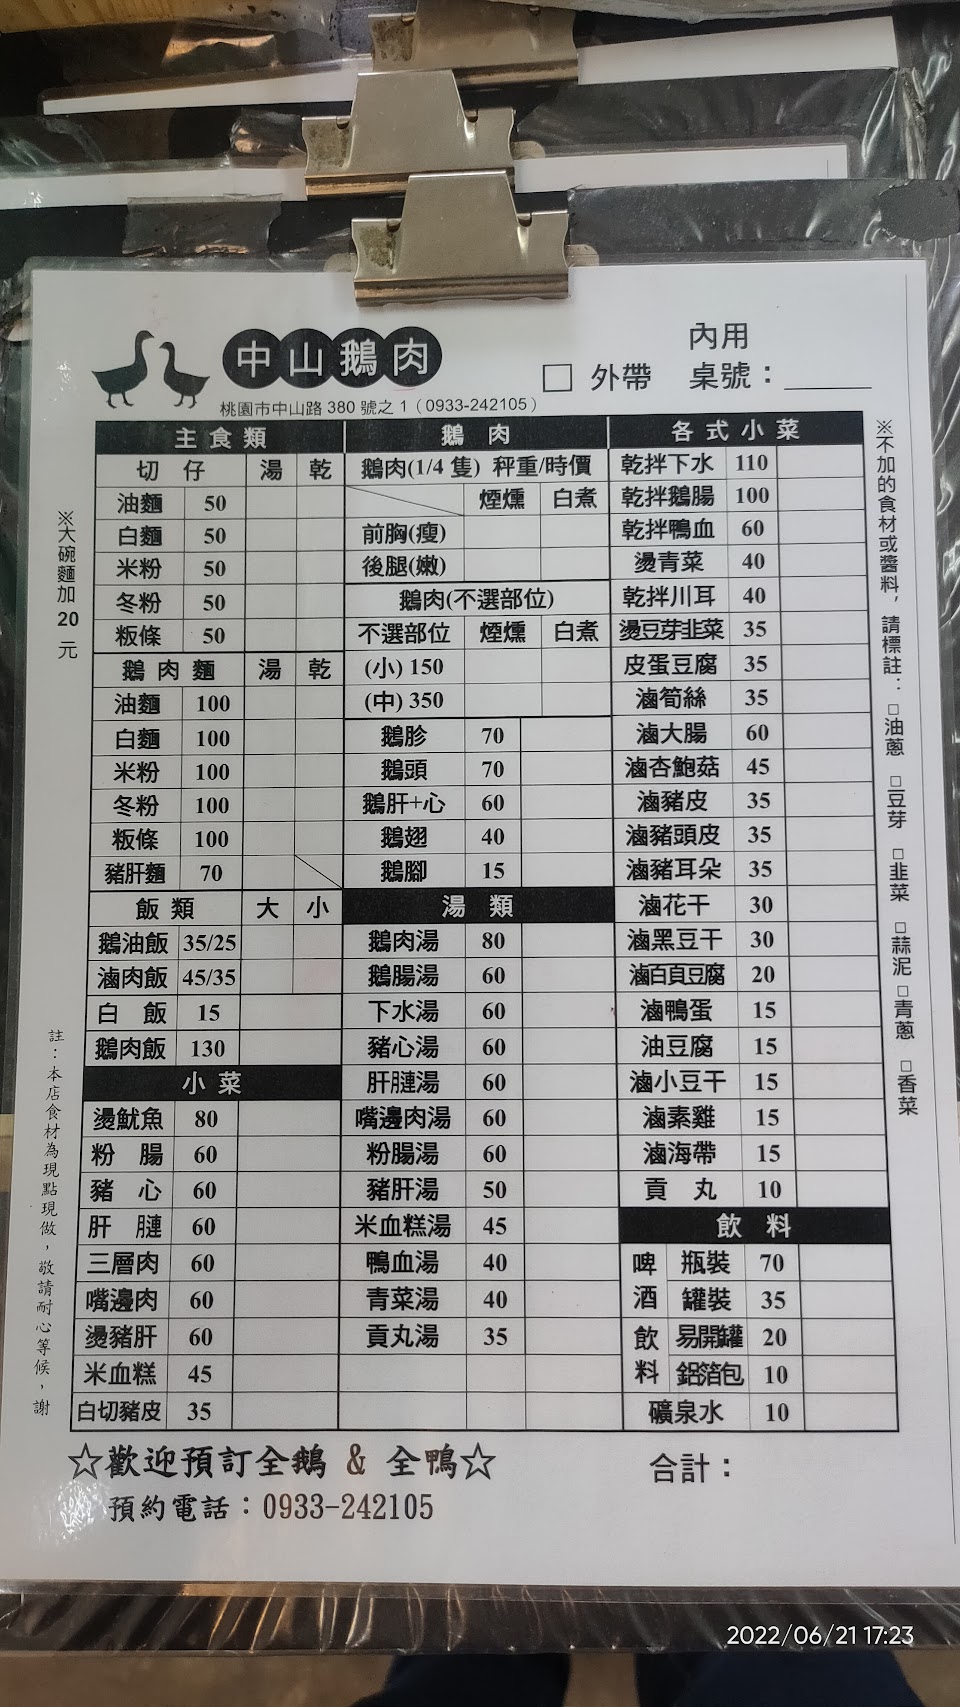 中山鵝肉
內用
□ 外帶 桌號：
桃園市中山路 380 號之 1（0933-242105）
主食類
切仔 湯 乾
油麵 50
白麵 50
米粉 50
冬粉 50
粄條 50
鵝肉麵 湯 乾
油麵 100
白麵 100
米粉 100
冬粉 100
粄條 100
豬肝麵 70
飯類 大 小
鵝油飯 35/25
滷肉飯 45/35
白飯 15
鵝肉飯 130
小菜
燙魷魚 80
粉腸 60
豬心 60
肝膧 60
三層肉 60
嘴邊肉 60
燙豬肝 60
米血糕 45
白切豬皮 35
鵝肉
鵝肉(1/4 隻) 秤重/時價
煙燻 白煮
前胸(瘦)
後腿(嫩)
鵝肉(不選部位)
不選部位 煙燻 白煮
(小) 150
(中) 350
鵝胗 70
鵝頭 70
鵝肝+心 60
鵝翅 40
鵝腳 15
湯類
鵝肉湯 80
鵝腸湯 60
下水湯 60
豬心湯 60
肝膧湯 60
嘴邊肉湯 60
粉腸湯 60
豬肝湯 50
米血糕湯 45
鴨血湯 40
青菜湯 40
貢丸湯 35
各式小菜
乾拌下水 110
乾拌鵝腸 100
乾拌鴨血 60
燙青菜 40
乾拌川耳 40
燙豆芽韭菜 35
皮蛋豆腐 35
滷筍絲 35
滷大腸 60
滷杏鮑菇 45
滷豬皮 35
滷豬頭皮 35
滷豬耳朵 35
滷花干 30
滷黑豆干 30
滷百頁豆腐 20
滷鴨蛋 15
油豆腐 15
滷小豆干 15
滷素雞 15
滷海帶 15
貢丸 10
飲料
啤酒 瓶裝 70
罐裝 35
飲料 易開罐 20
鋁箔包 10
礦泉水 10
※大碗麵加 20 元
註：本店食材為現點現做，敬請耐心等候，謝
※不加的食材或醬料，請標註：□油蔥 □豆芽 □韭菜 □蒜泥 □青蔥 □香菜
☆歡迎預訂全鵝 & 全鴨☆
合計：
預約電話：0933-242105
2022/06/21 17:23